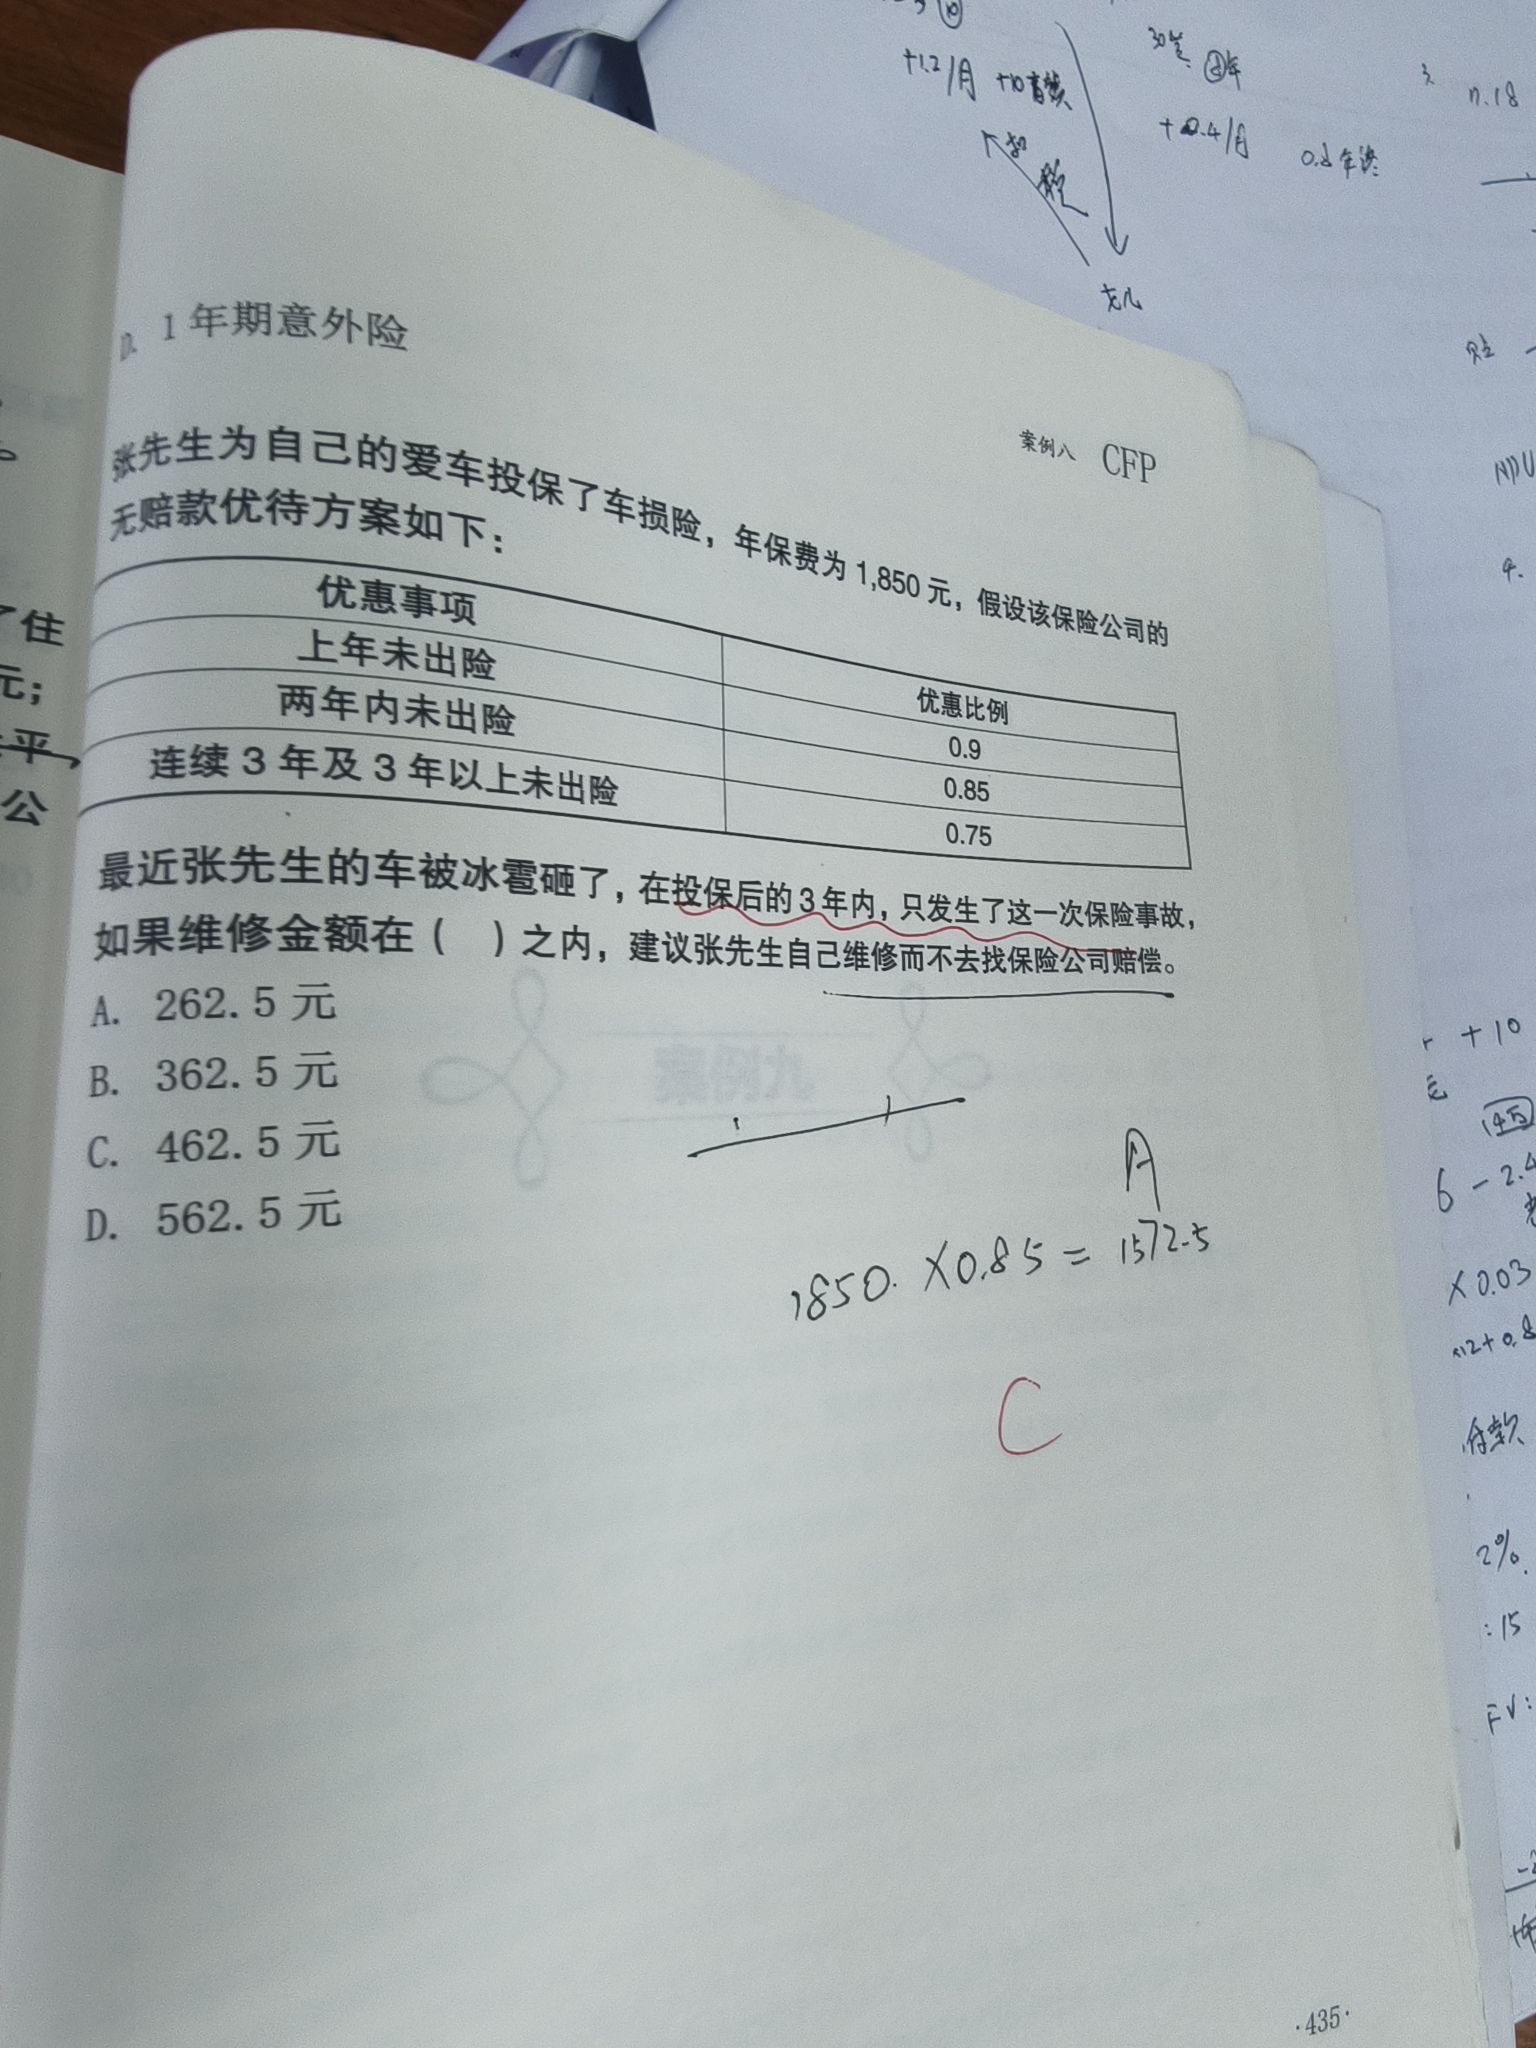 D. 1年期意外险
案例八 CFP
张先生为自己的爱车投保了车损险，年保费为 1,850 元，假设该保险公司的
无赔款优待方案如下：
优惠事项 优惠比例
上年未出险 0.9
两年内未出险 0.85
连续 3 年及 3 年以上未出险 0.75
最近张先生的车被冰雹砸了，在投保后的 3 年内，只发生了这一次保险事故，
如果维修金额在（ ）之内，建议张先生自己维修而不去找保险公司赔偿。
A. 262.5 元
B. 362.5 元
C. 462.5 元
D. 562.5 元
案例九
A
1850. ×0.85 = 1572.5
C
·435·
了住
元；
平，
公
+1.2/月
30岁
+0.4/月
0.8年终
3.
4.
+10
6 - 2.4
×0.03
付款
2%.
:15
FV: